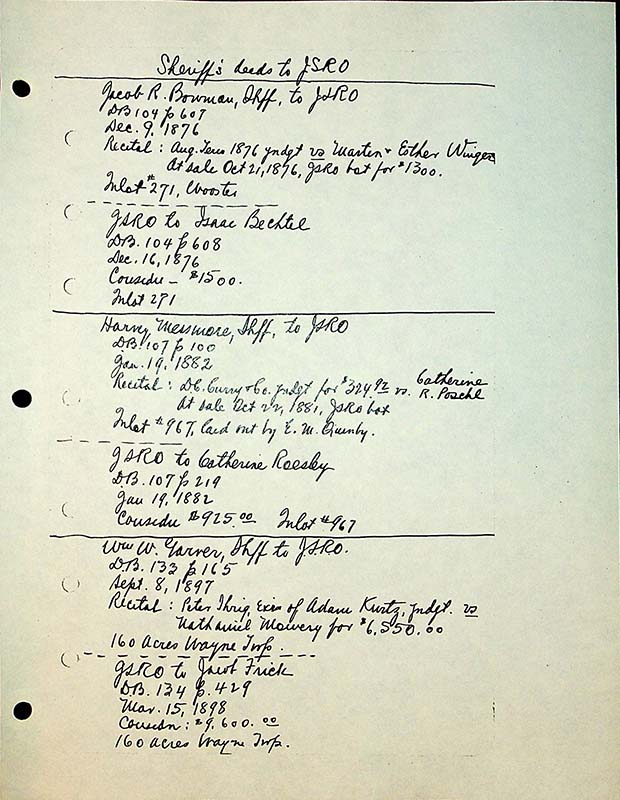 Sheriff's deeds to JSRO
Jacob R. Bowman, Shff, to JSRO
DB 104 p 607
Dec. 9, 1876
Recital : Aug. Term 1876 jndgt vs Martin + Esther Winger
At sale Oct 21, 1876, JSRO bot for $1300.
Inlot #271, Wooster
JSRO to Isaac Bechtel
DB. 104 p 608
Dec. 16, 1876
Considn – $1500.
Inlot 271
Harvey Messmore, Shff, to JSRO
DB. 107 p 100
Jan. 19, 1882
Recital : D.C. Curry + Co. jndgt for $324.92 vs. Catherine
R. Poschl
At sale Oct 22, 1881, JSRO bot
Inlot #967, laid out by E. M. Quinby.
JSRO to Catherine Roesky
DB. 107 p 219
Jan 19, 1882
Considn $925.00 Inlot #967
Wm W. Garver, Shff to JSRO.
D.B. 133 p 165
Sept. 8, 1897
Recital : Peter Ihrig, Exr of Adam Kurtz, jndgt. vs
Nathaniel Mowery for $6,550.00
160 Acres Wayne Twp.
JSRO to Jacob Frick
D.B. 134 p. 429
Mar. 15, 1898
Considn : $9,600.00
160 acres Wayne Twp.